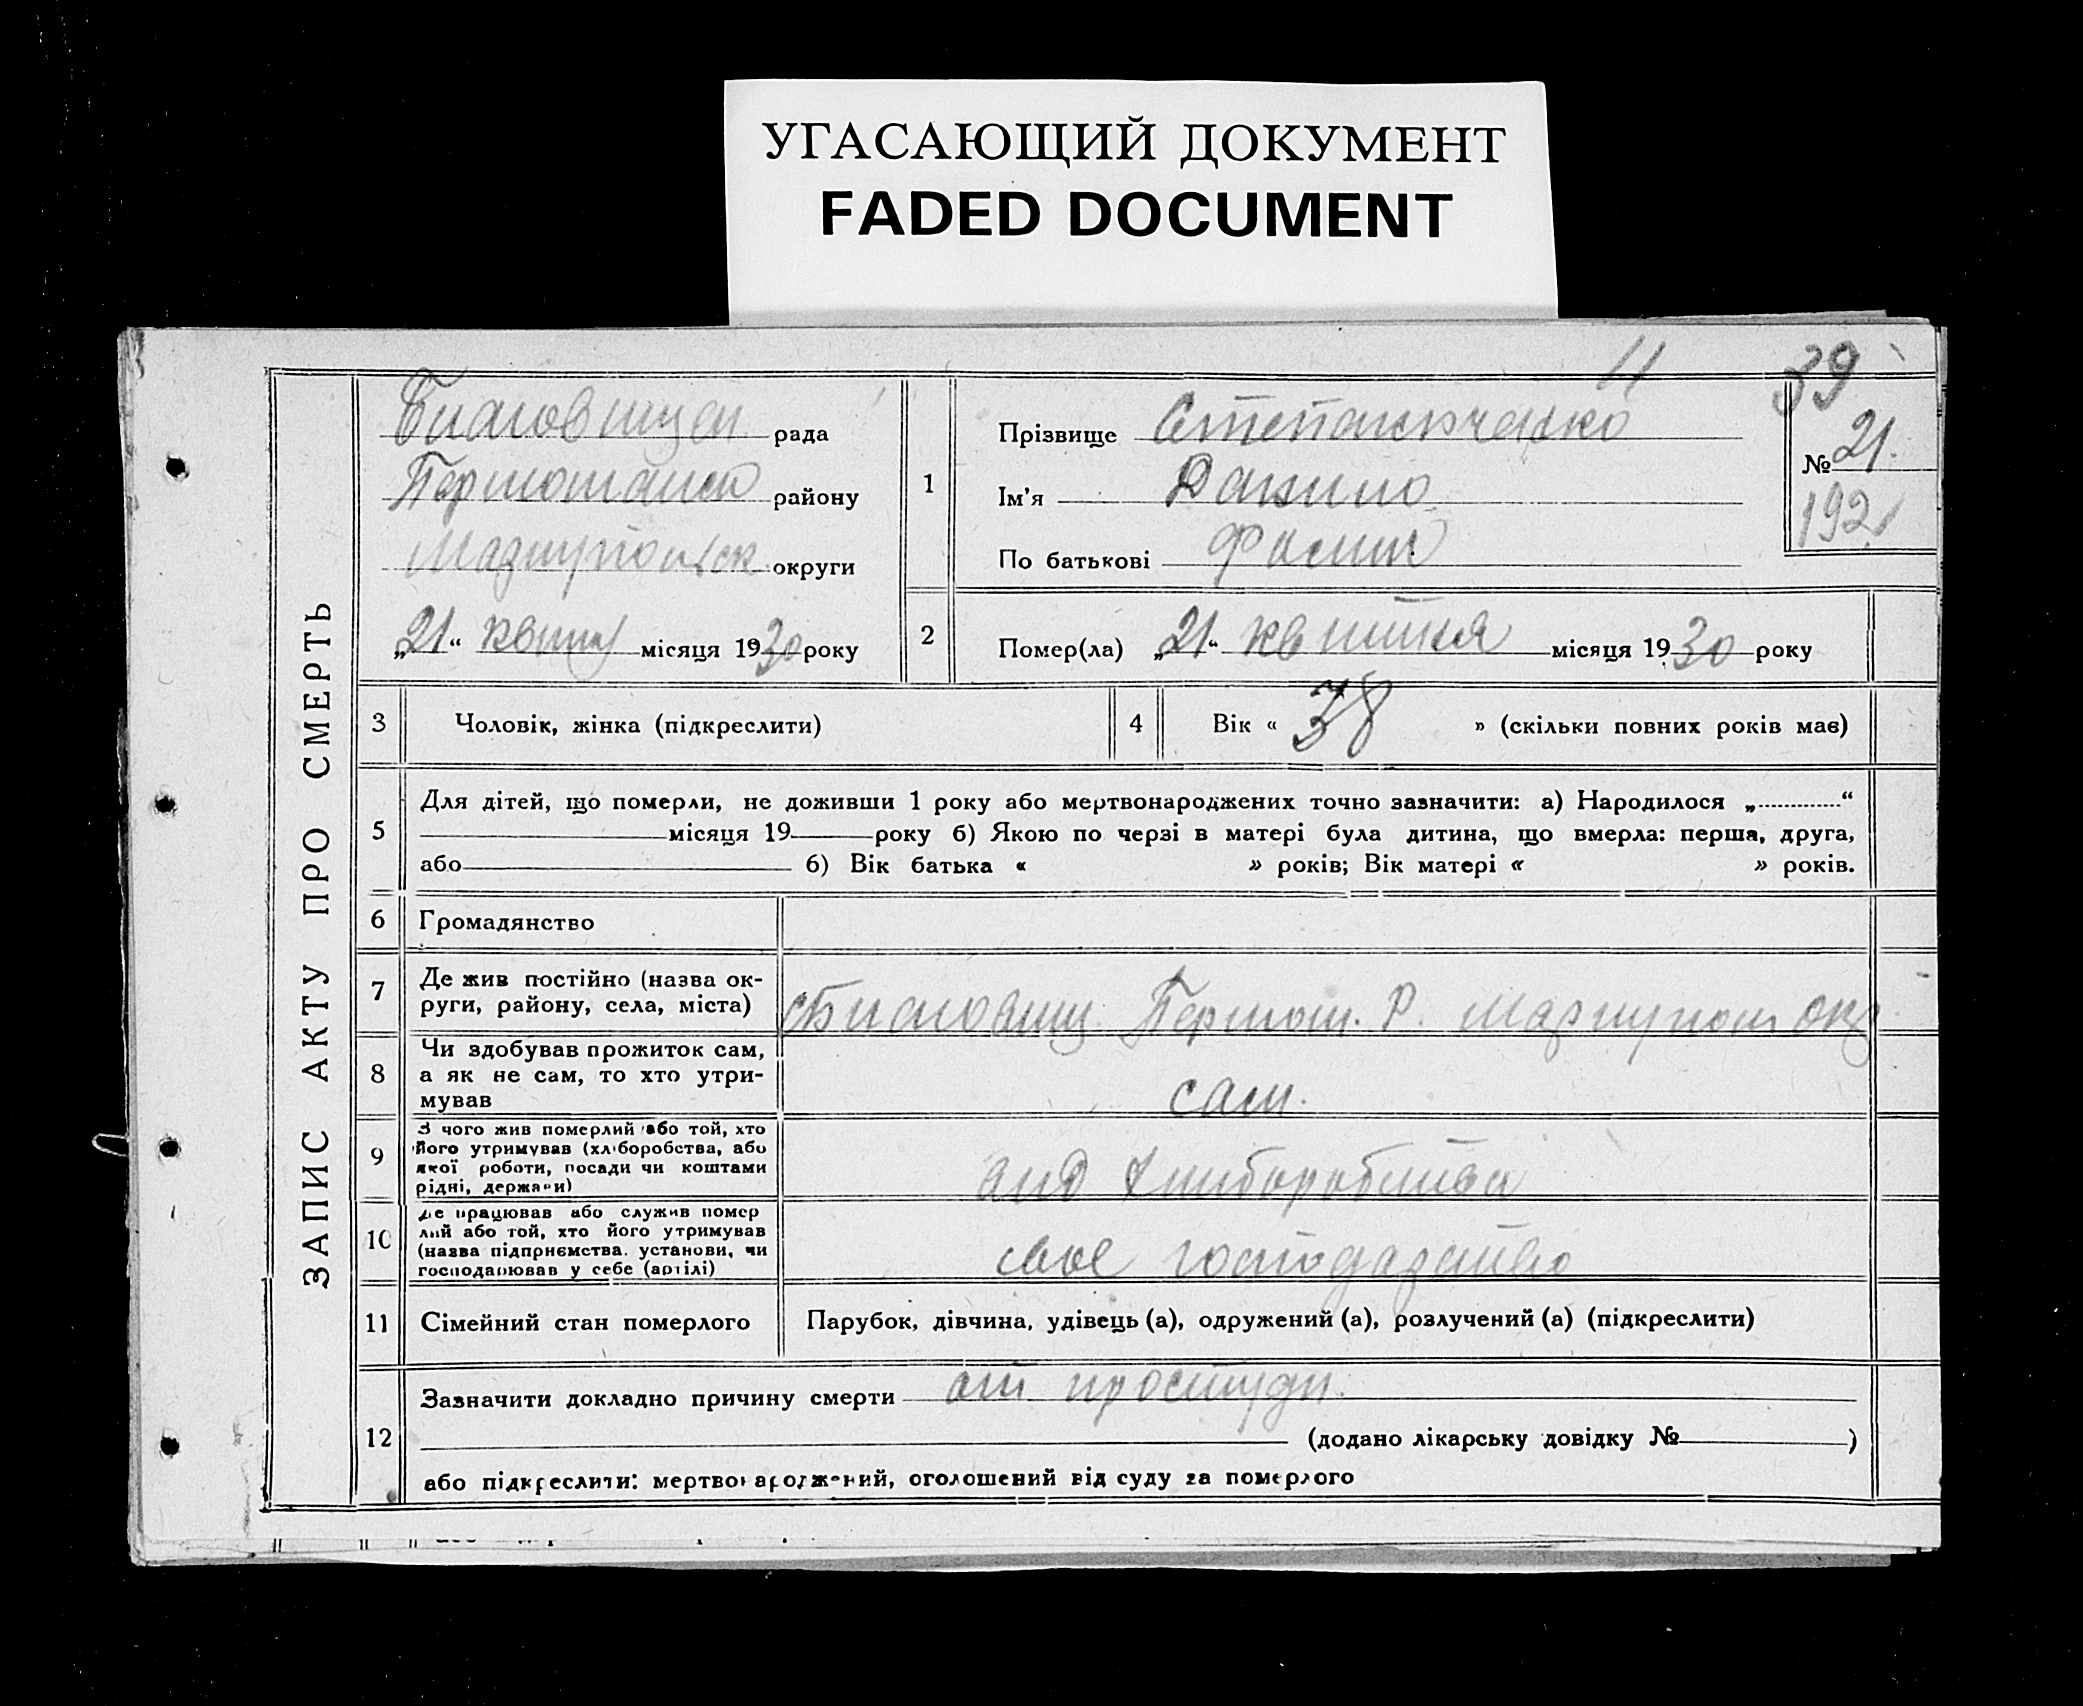 УГАСАЮЩИЙ ДОКУМЕНТ
FADED DOCUMENT
39
ЗАПИС АКТУ ПРО СМЕРТЬ
Благовищен рада
району
Маріупольск округи
„21“ квітня місяця 1930 року
1
Прізвище Степанюченко
Ім'я Данило
По батькові
№ 21.
192
2
Помер(ла) „21“ квітня місяця 1930 року
3 Чоловік, жінка (підкреслити)
4 Вік « 38 » (скільки повних років має)
5
Для дітей, що померли, не доживши 1 року або мертвонароджених точно зазначити: а) Народилося „............“
місяця 19 року б) Якою по черзі в матері була дитина, що вмерла: перша, друга,
або б) Вік батька « » років; Вік матері « » років.
6 Громадянство
7
Де жив постійно (назва ок-
руги, району, села, міста)
Р. окр
8
Чи здобував прожиток сам,
а як не сам, то хто утри-
мував
сам.
9
З чого жив померлий або той, хто
його утримував (хліборобства, або
якої роботи, посади чи коштами
рідні, держави)
від хліборобства
10
Де працював або служив помер
лий або той, хто його утримував
(назва підприємства, установи, чи
господарював у себе (артілі)
свое господарство
11 Сімейний стан померлого
Парубок, дівчина, удівець (а), одружений (а), розлучений (а) (підкреслити)
12
Зазначити докладно причину смерти от простуди.
(додано лікарську довідку № )
або підкреслити: мертвонароджений, оголошений від суду за померлого